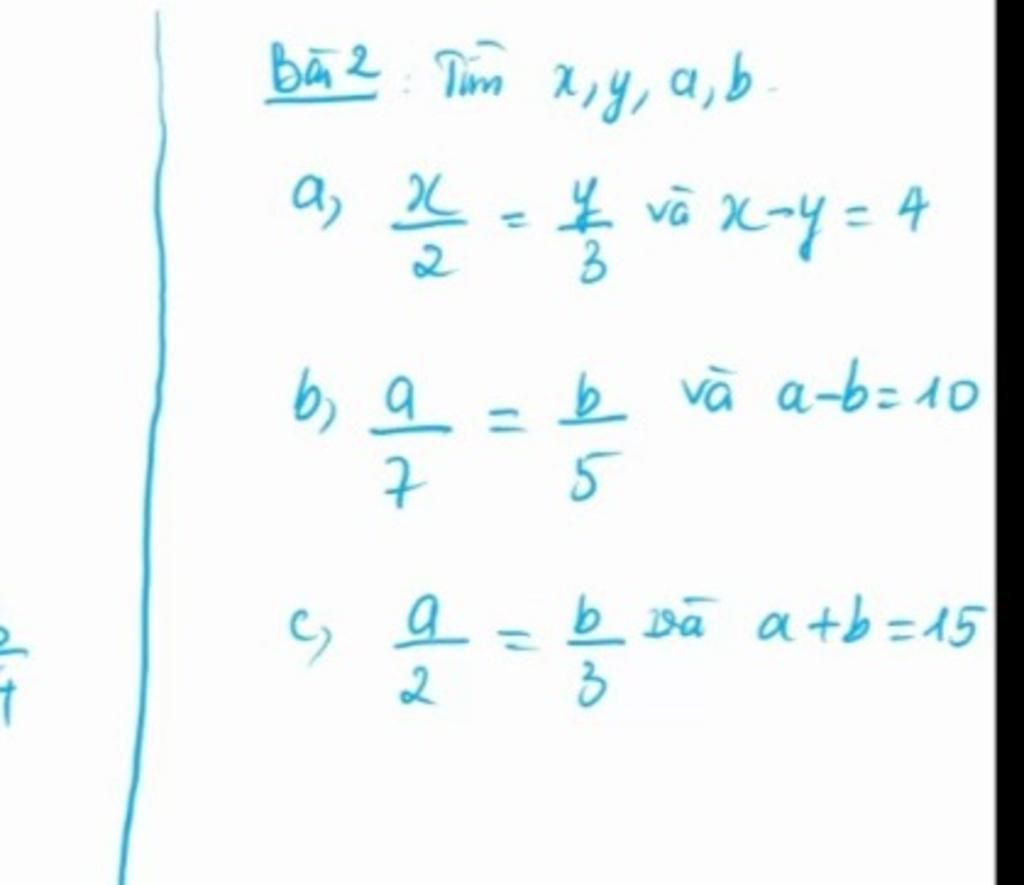 Bài 2: Tìm x, y, a, b.
a, x/2 = y/3 và x-y = 4
b, a/7 = b/5 và a-b=10
c, a/2 = b/3 và a+b=15